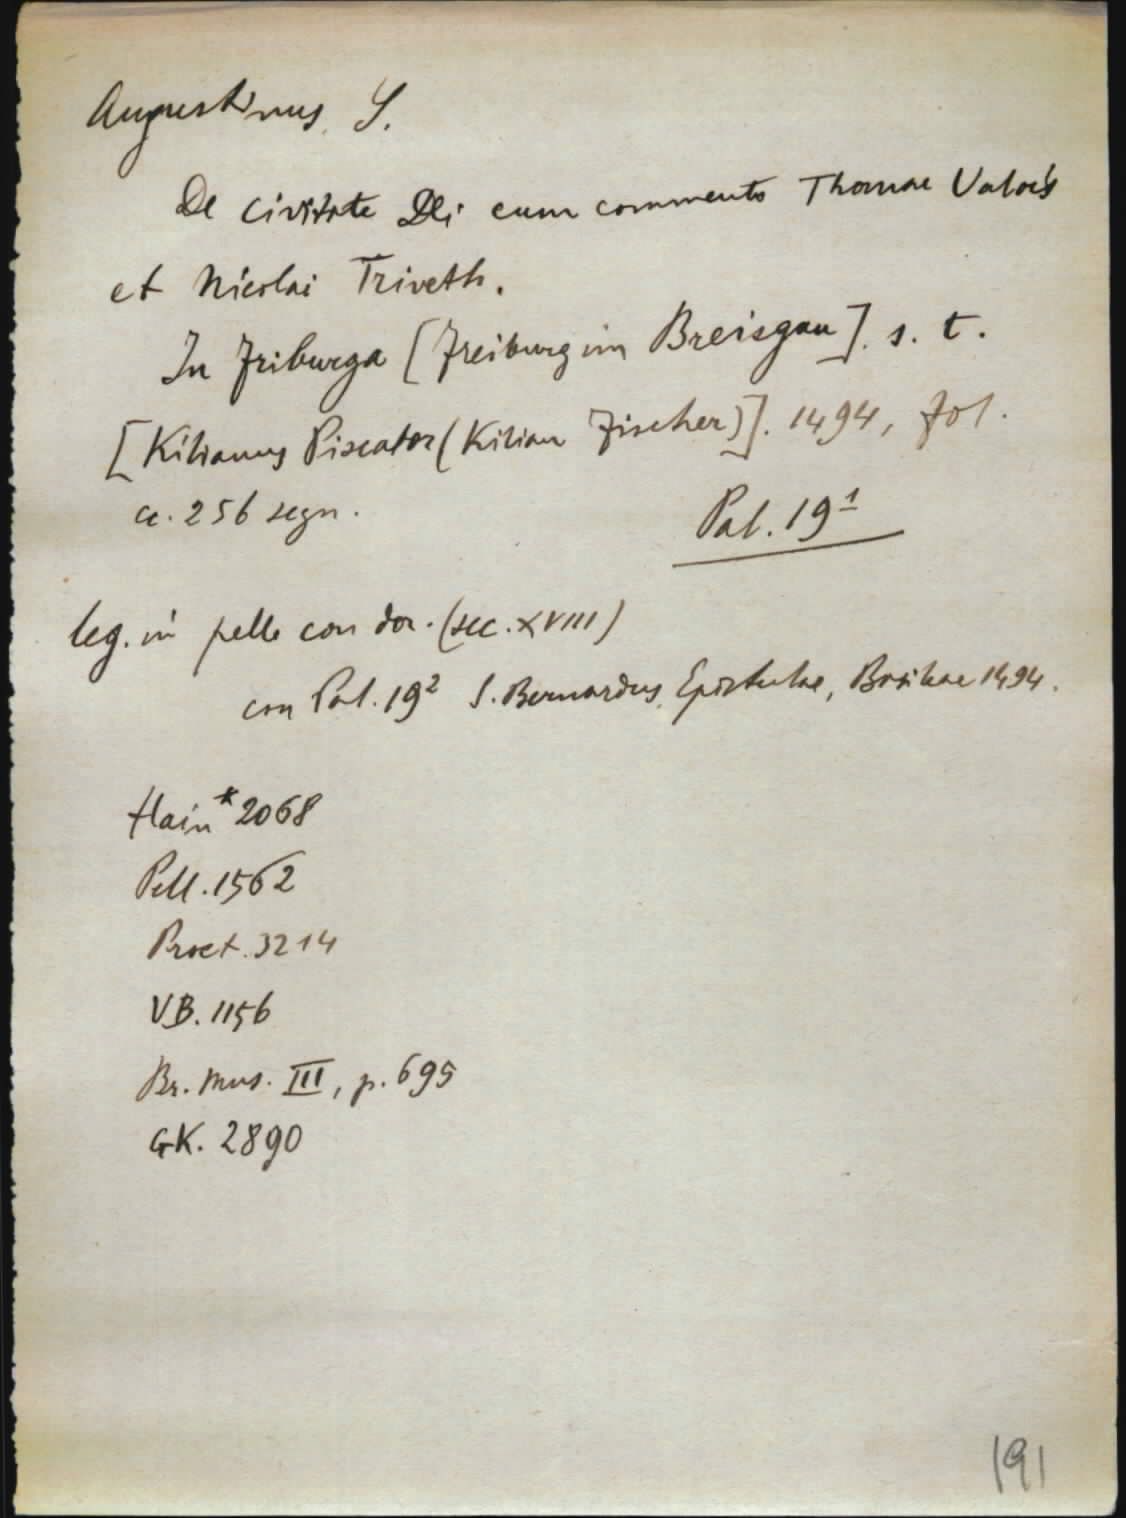 Augustinus, S.
De civitate Dei cum commento Thomae Valois
et Nicolai Triveth.
In Friburga [Freiburg im Breisgau]. s. t.
[Kilianus Piscator (Kilian Fischer)]. 1494, fol.
cc. 256 segn.
Pal. 19¹
leg. in pelle con dor. (sec. XVIII)
con Pal. 19² S. Bernardus, Epistulae, Basileae 1494.
Hain* 2068
Pell. 1562
Proct. 3214
VB. 1156
Br. Mus. III, p. 695
GK. 2890
191